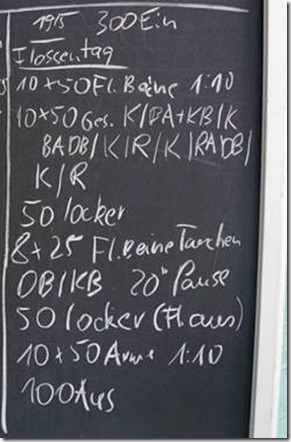 1915 300 Ein
Flossentag
10x50 Fl. Beine 1:10
10x50 Ges. K/BA+KB/K
BADB/K/R/K/RADB/
K/R
50 locker
8x25 Fl. Beine Tauchen
DB/KB 20" Pause
50 locker (Fl aus)
10x50 Arme 1:10
100 Aus